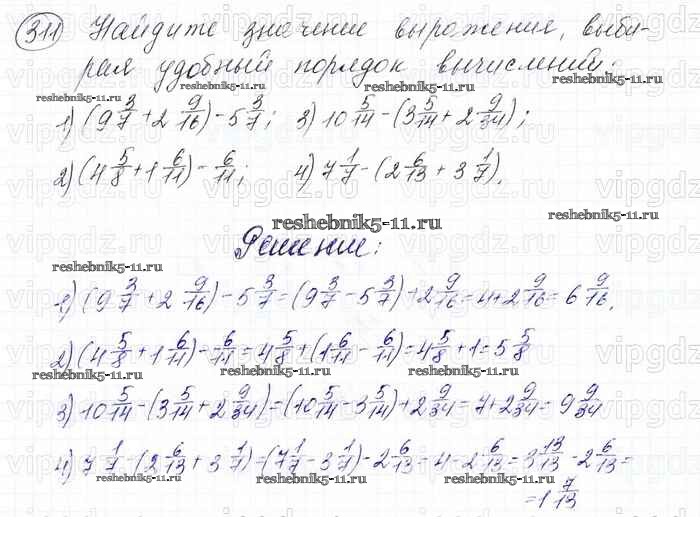 311 Найдите значение выражение, выби-
рая удобный порядок вычислений:
reshebnik5-11.ru reshebnik5-11.ru
1) (9 3/7 + 2 9/16) - 5 3/7; 3) 10 5/14 - (3 5/14 + 2 9/34);
2) (4 5/8 + 1 6/11) - 6/11; 4) 7 1/7 - (2 6/13 + 3 1/7).
reshebnik5-11.ru
reshebnik5-11.ru
Решение:
reshebnik5-11.ru
1) (9 3/7 + 2 9/16) - 5 3/7 = (9 3/7 - 5 3/7) + 2 9/16 = 4 + 2 9/16 = 6 9/16.
2) (4 5/8 + 1 6/11) - 6/11 = 4 5/8 + (1 6/11 - 6/11) = 4 5/8 + 1 = 5 5/8
reshebnik5-11.ru reshebnik5-11.ru
3) 10 5/14 - (3 5/14 + 2 9/34) = (10 5/14 - 3 5/14) + 2 9/34 = 7 + 2 9/34 = 9 9/34
4) 7 1/7 - (2 6/13 + 3 1/7) = (7 1/7 - 3 1/7) - 2 6/13 = 4 - 2 6/13 = 3 13/13 - 2 6/13 =
reshebnik5-11.ru reshebnik5-11.ru
= 1 7/13
reshebnik5-11.ru
vipgdz.ru